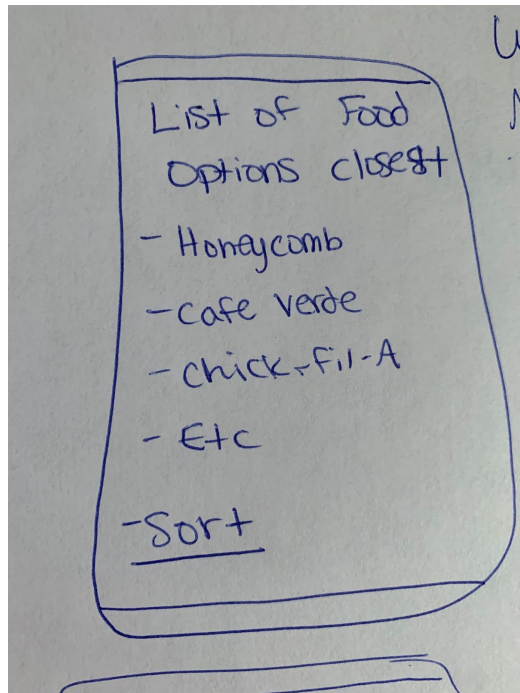 List of Food
Options closest
- Honeycomb
- cafe verde
- chick-fil-A
- Etc
- Sort